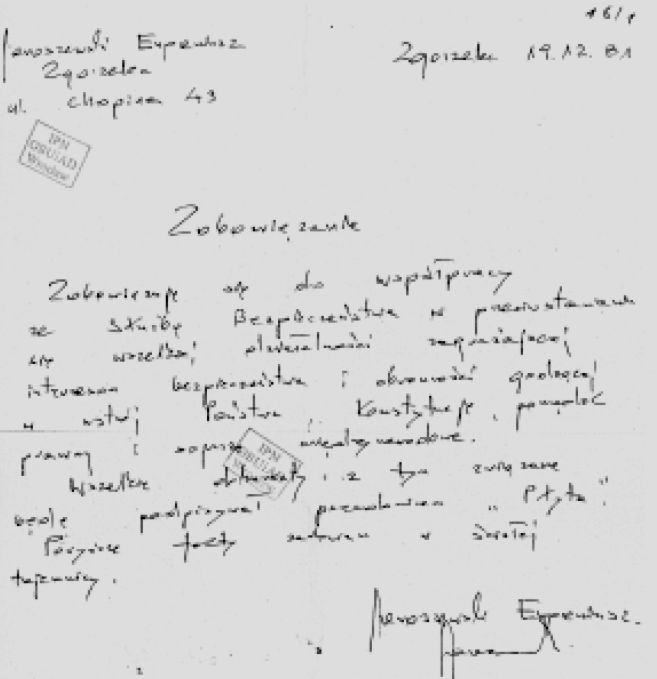 16/1
Jaroszewski Eugeniusz
Zgorzelec
ul. Chopina 43
Zgorzelec 19.12.81
IPN
OBUiAD
Wrocław
Zobowiązanie
Zobowiązuję się do współpracy
ze Służbą Bezpieczeństwa w przeciwstawianiu
się wszelkiej działalności zagrażającej
interesom bezpieczeństwa i obronności godzącej
w ustrój Państwa, Konstytucję, porządek
prawny i sojusze międzynarodowe.
IPN
OBUiAD
Wszelkie dokumenty z tym związane
będę podpisywał pseudonimem "Płyta"
Powyższe fakty zachowam w ścisłej
tajemnicy.
Jaroszewski Eugeniusz.